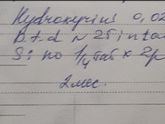 Hydroxyzini 0,02
D.t.d N 25 in tab
S: по 1/4 таб x 2р
2 мес.